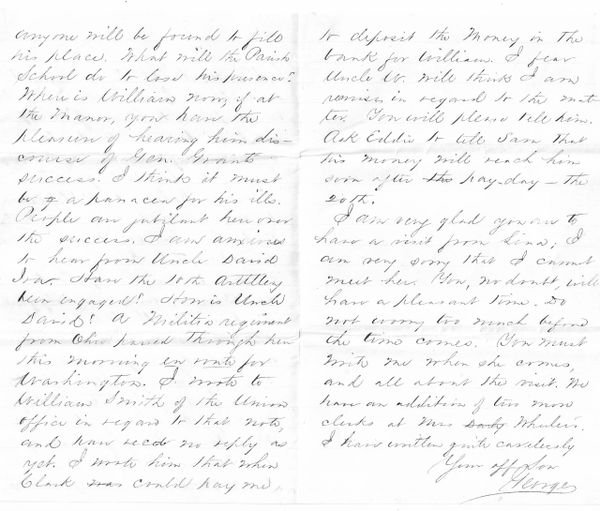 anyone will be found to fill
his place. What will the Parish
School do to lose his presence?
Where is William now, if at
the Manor, you have the
pleasure of hearing him dis-
course of Gen. Grants
success. I think it must
be a panacea for his ills.
People are jubilant here over
the success. I am anxious
to hear from Uncle David
Ira. Have the 10th Artillery
been engaged? How is Uncle
David? A Militia regiment
from Ohio passed through here
this morning en route for
Washington. I wrote to
William Smith of the Union
office in regard to that note,
and have recd no reply as
yet. I wrote him that when
Clark was could pay me,
to deposit the Money in the
bank for William. I fear
Uncle W. will think I am
remiss in regard to the mat-
ter. You will please tell him.
Ask Eddie to tell Sam that
his money will reach him
soon after this pay-day - the
20th.
I am very glad you are to
have a visit from Lina; I
am very sorry that I cannot
meet her. You, no doubt, will
have a pleasant time. Do
not worry too much before
the time comes. You must
write me when she comes,
and all about the visit. We
have an addition of two more
clerks at Mrs Wheeler's.
I have written quite carelessly
Your aff Son
George